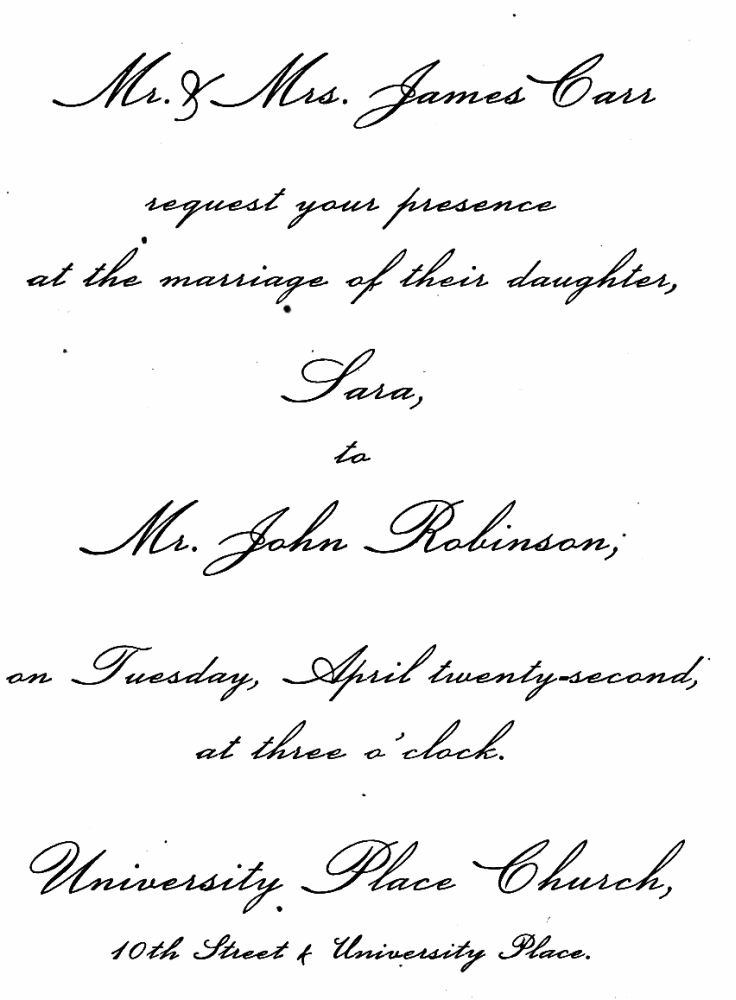 Mr. & Mrs. James Carr
request your presence
at the marriage of their daughter,
Sara,
to
Mr. John Robinson;
on Tuesday, April twenty-second,
at three o'clock.
University Place Church,
10th Street & University Place.